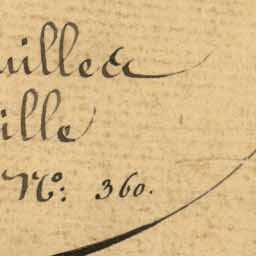 uille &
ille
Nº: 360.